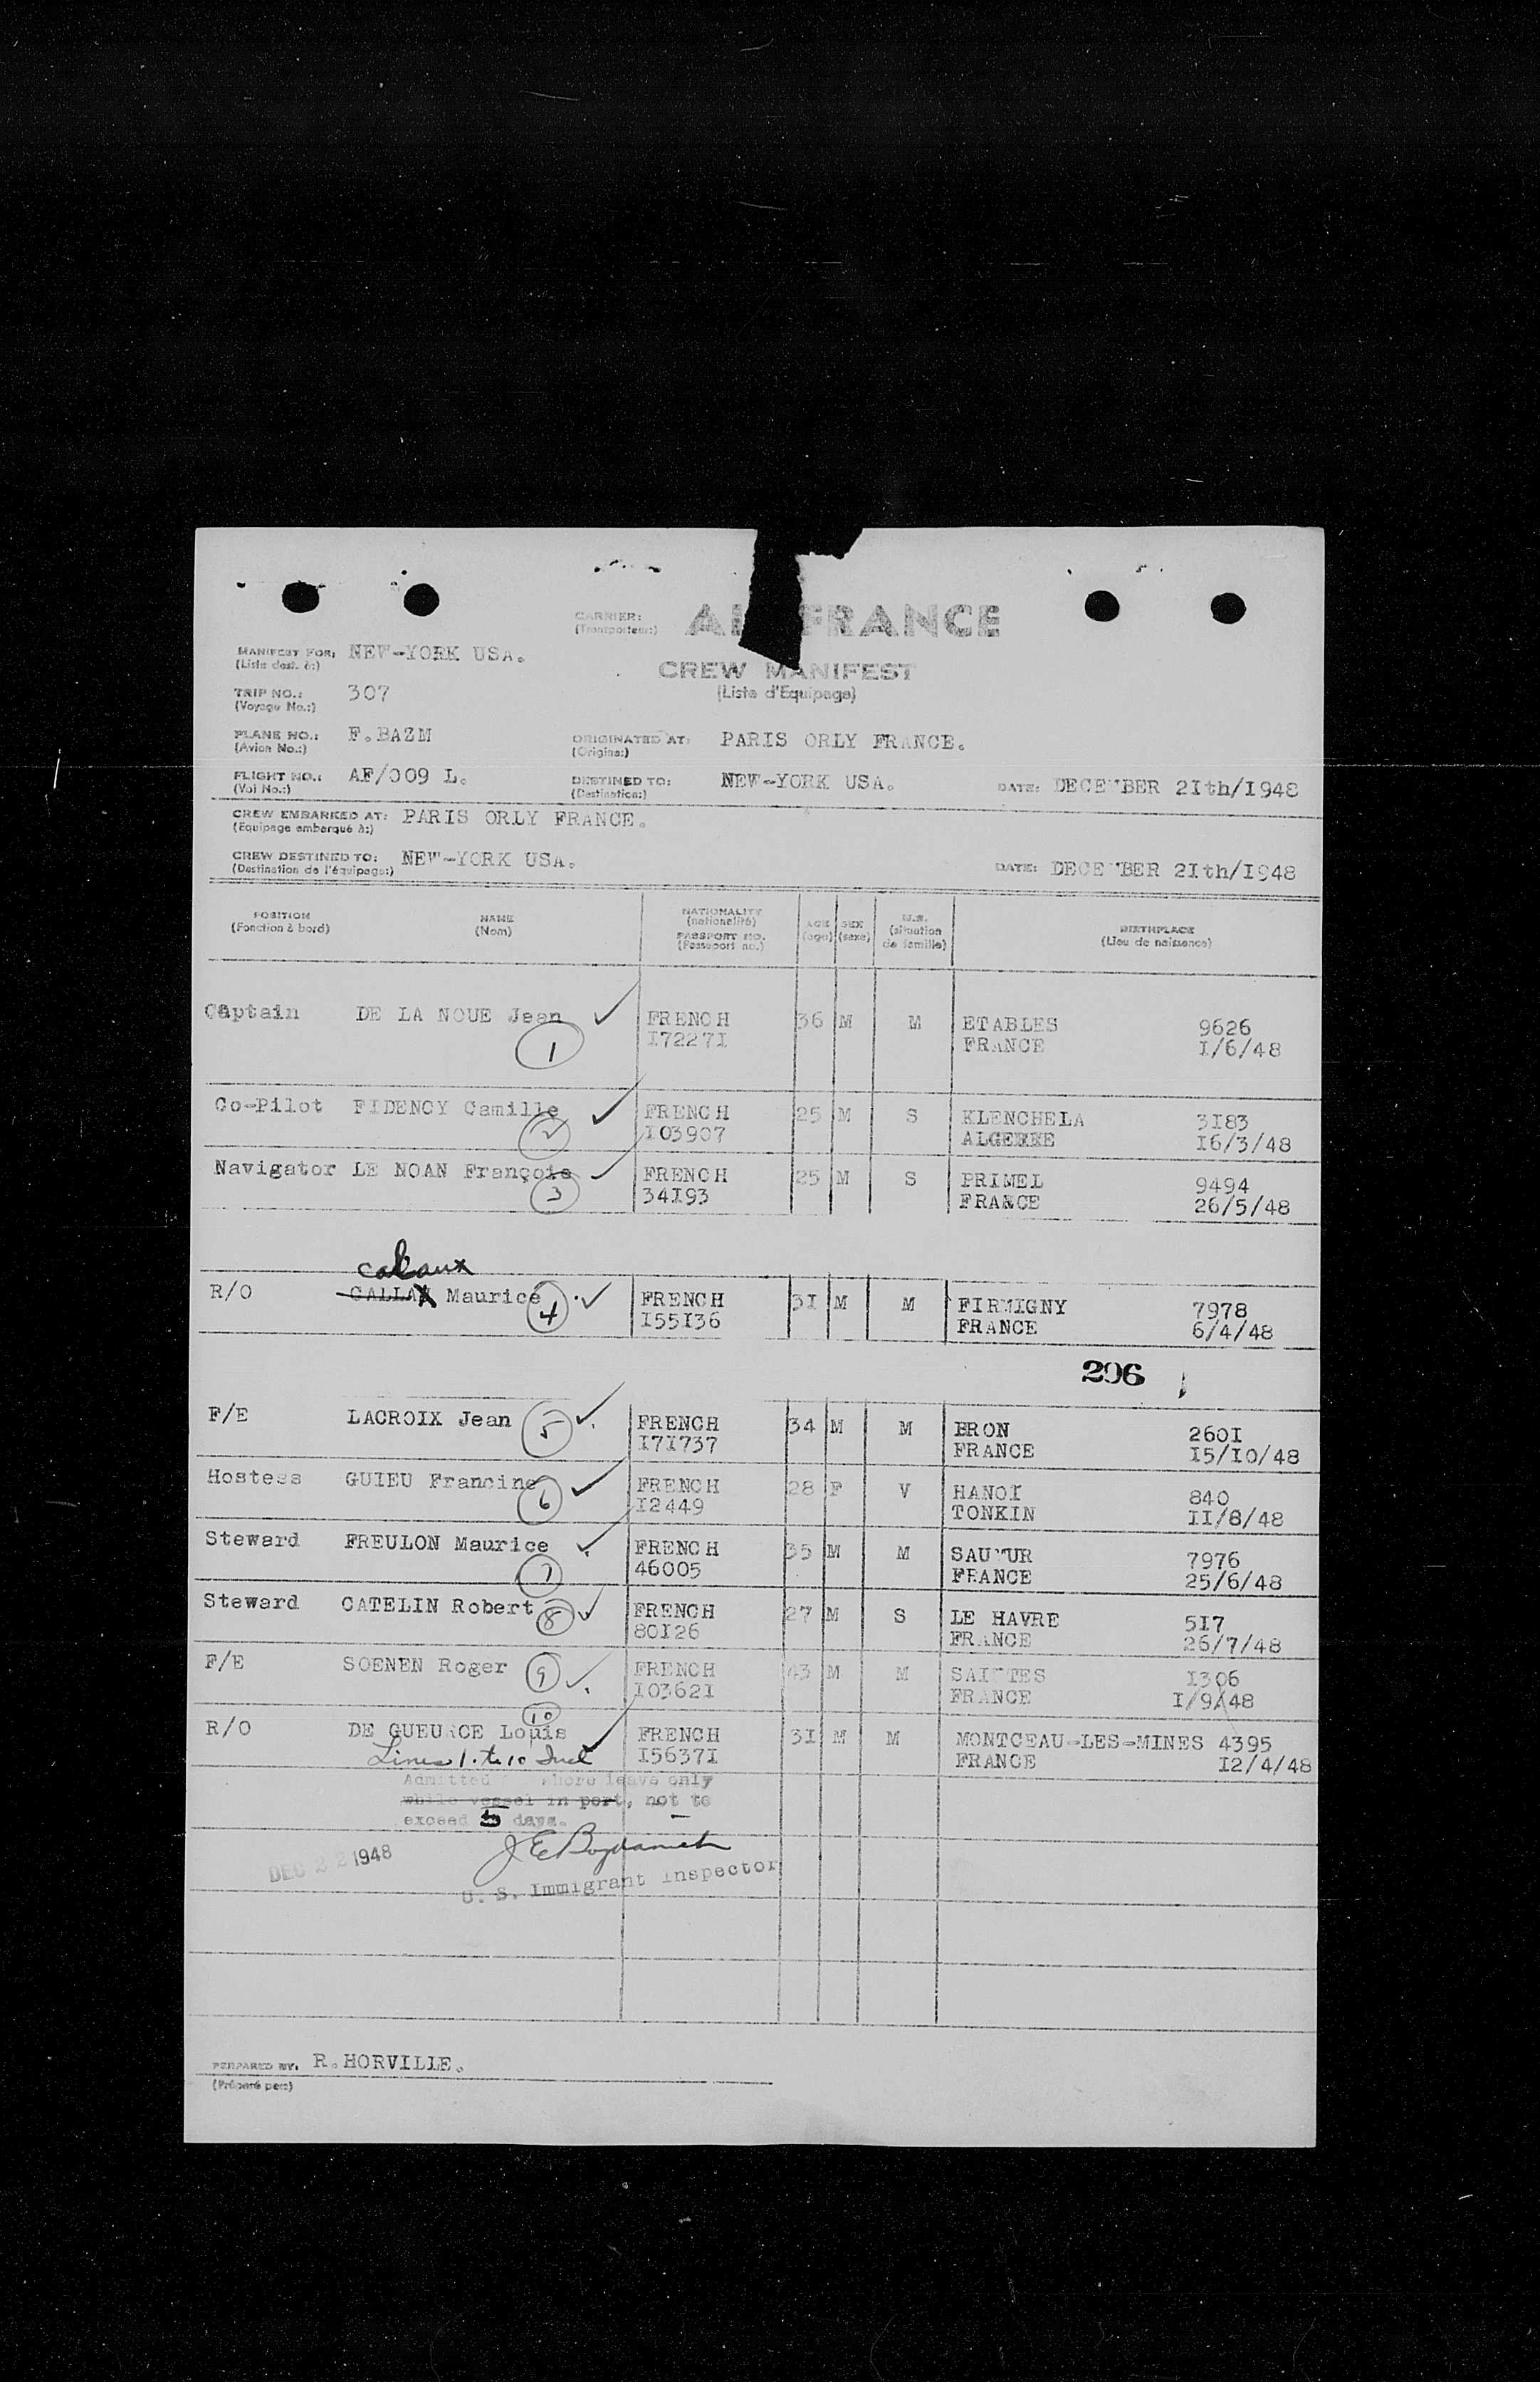 CARRIER: AI FRANCE
(Transporteur:)
MANIFEST FOR: NEW-YORK USA.
(Liste dest. à:)
CREW MANIFEST
(Liste d'Equipage)
TRIP NO.: 307
(Voyage No.:)
PLANE NO.: F.BAZM
(Avion No.:)
ORIGINATED AT: PARIS ORLY FRANCE.
(Origine:)
FLIGHT NO.: AF/009 L.
(Vol No.:)
DESTINED TO: NEW-YORK USA.
(Destination:)
DATE: DECE BER 21th/1948
CREW EMBARKED AT: PARIS ORLY FRANCE.
(Equipage embarqué à:)
CREW DESTINED TO: NEW-YORK USA.
(Destination de l'équipage:)
DATE: DECE BER 21th/1948
POSITION NAME NATIONALITY AGE SEX M.S. BIRTHPLACE
(Fonction à bord) (Nom) (nationalité) (age) (sexe) (situation de famille) (Lieu de naissance)
PASSPORT NO.
(Passeport no.)
Captain DE LA NOUE Jean FRENCH 36 M M ETABLES 9626
1 I7227I FRANCE I/6/48
Co-Pilot FIDENCY Camille FRENCH 25 M S KLENCHELA 3I83
2 I03907 ALGERIE I6/3/48
Navigator LE NOAN François FRENCH 25 M S PRIMEL 9494
3 34I93 FRANCE 26/5/48
Calaux
R/O CALLAX Maurice 4 FRENCH 3I M M FIRMIGNY 7978
I55I36 FRANCE 6/4/48
296
F/E LACROIX Jean 5 FRENCH 34 M M BRON 260I
I7I737 FRANCE I5/I0/48
Hostess GUIEU Francine 6 FRENCH 28 F V HANOI 840
I2449 TONKIN II/8/48
Steward FREULON Maurice FRENCH 35 M M SAUMUR 7976
7 46005 FRANCE 25/6/48
Steward CATELIN Robert 8 FRENCH 27 M S LE HAVRE 5I7
80I26 FRANCE 26/7/48
F/E SOENEN Roger 9 FRENCH 43 M M SAINTES I306
I0362I FRANCE I/9/48
10
R/O DE GUEURCE Louis FRENCH 3I M M MONTCEAU-LES-MINES 4395
Lines 1 to 10 Incl I5637I FRANCE I2/4/48
Admitted shore leave only
while vessel in port, not to
exceed days.
DEC 22 1948
U. S. Immigrant Inspector
PREPARED BY: R.HORVILLE.
(Préparé par:)